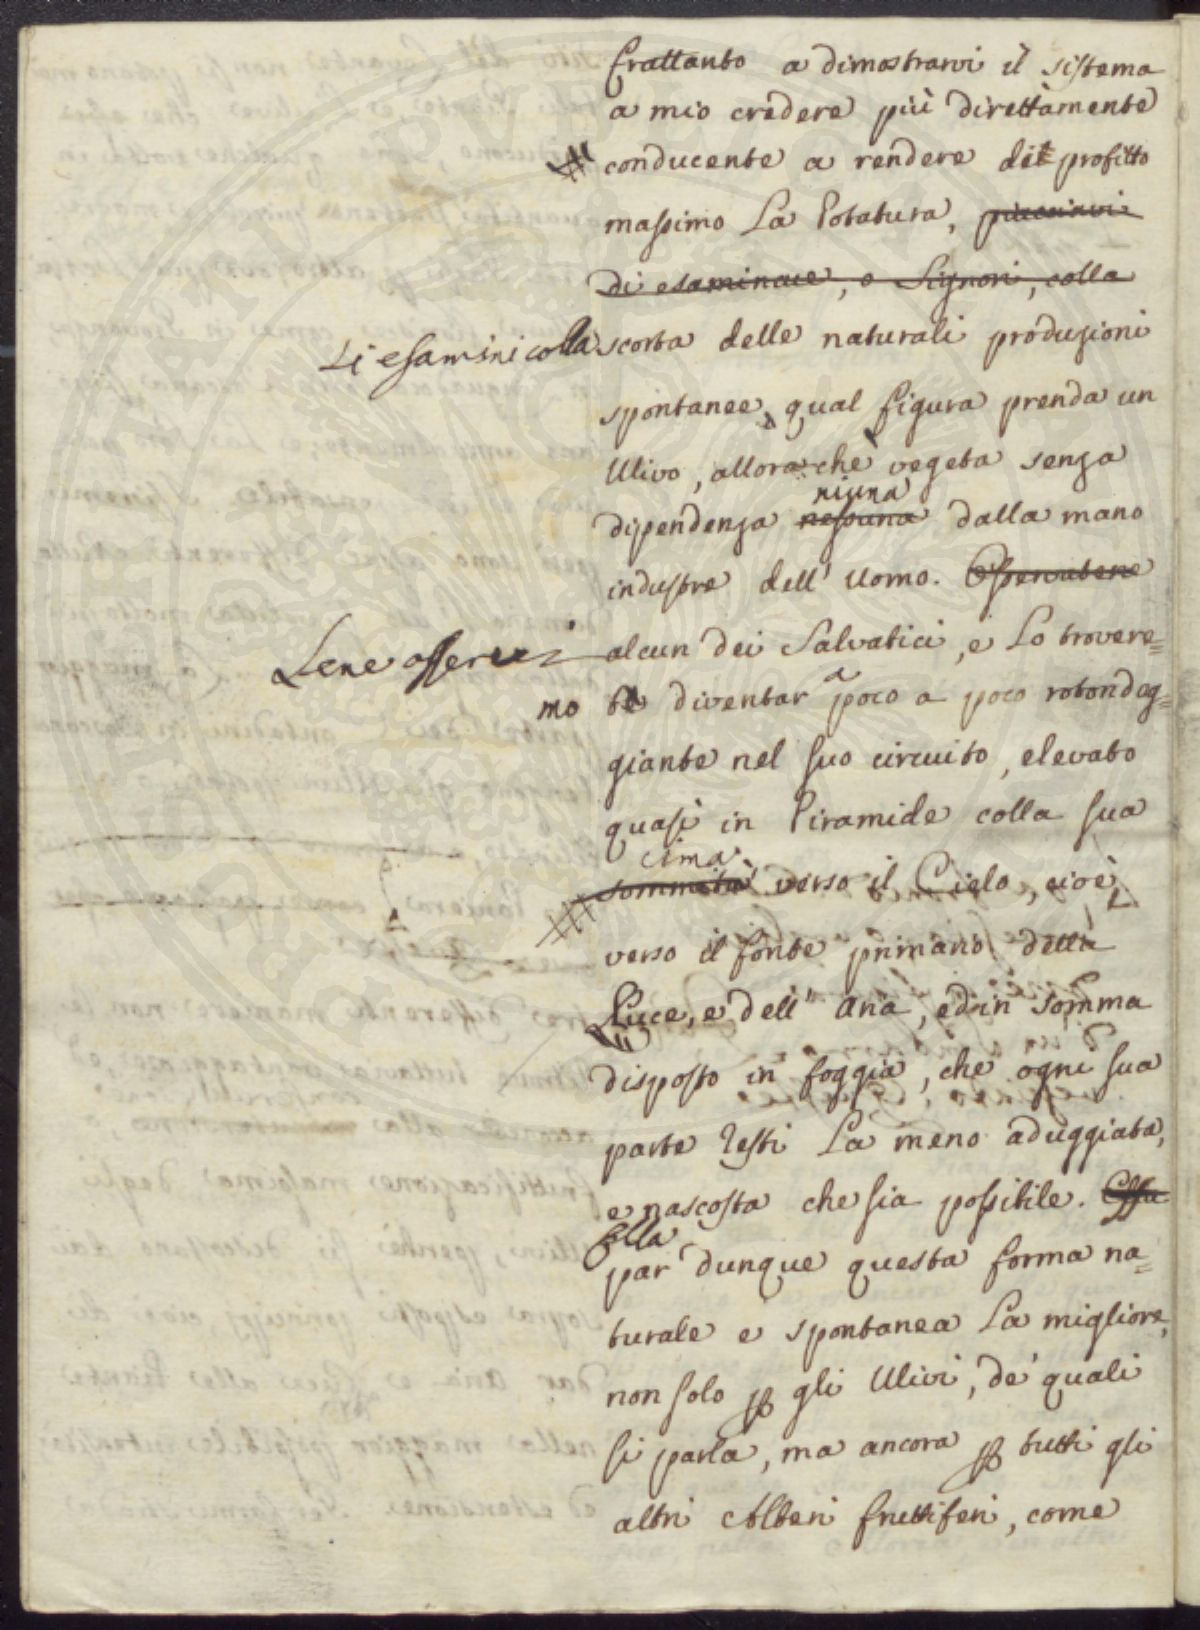 Frattanto a dimostrarvi il sistema
a mio credere più direttamente
conducente a rendere di profitto
massimo La Potatura, piacciavi
di esaminare, o Signori, colla
Si esamini colla scorta delle naturali produzioni
spontanee, qual figura prenda un
Ulivo, allora che vegeta senza
niuna
dipendenza nessuna dalla mano
industre dell' Uomo. Osservatene
Se ne osservi alcun dei Salvatici, e Lo trovere=
mo te diventar a poco a poco rotondeg=
giante nel suo circuito, elevato
quasi in Piramide colla sua
cima
sommità verso il Cielo, cioè
verso il fonte primario della
Luce, e dell' Aria, ed in somma
disposto in foggia, che ogni sua
parte resti La meno aduggiata,
e nascosta che sia possibile. Essa
Ella
par dunque questa forma na=
turale e spontanea La migliore,
non solo per gli Ulivi, de' quali
si parla, ma ancora per tutti gli
altri Alberi fruttiferi, come